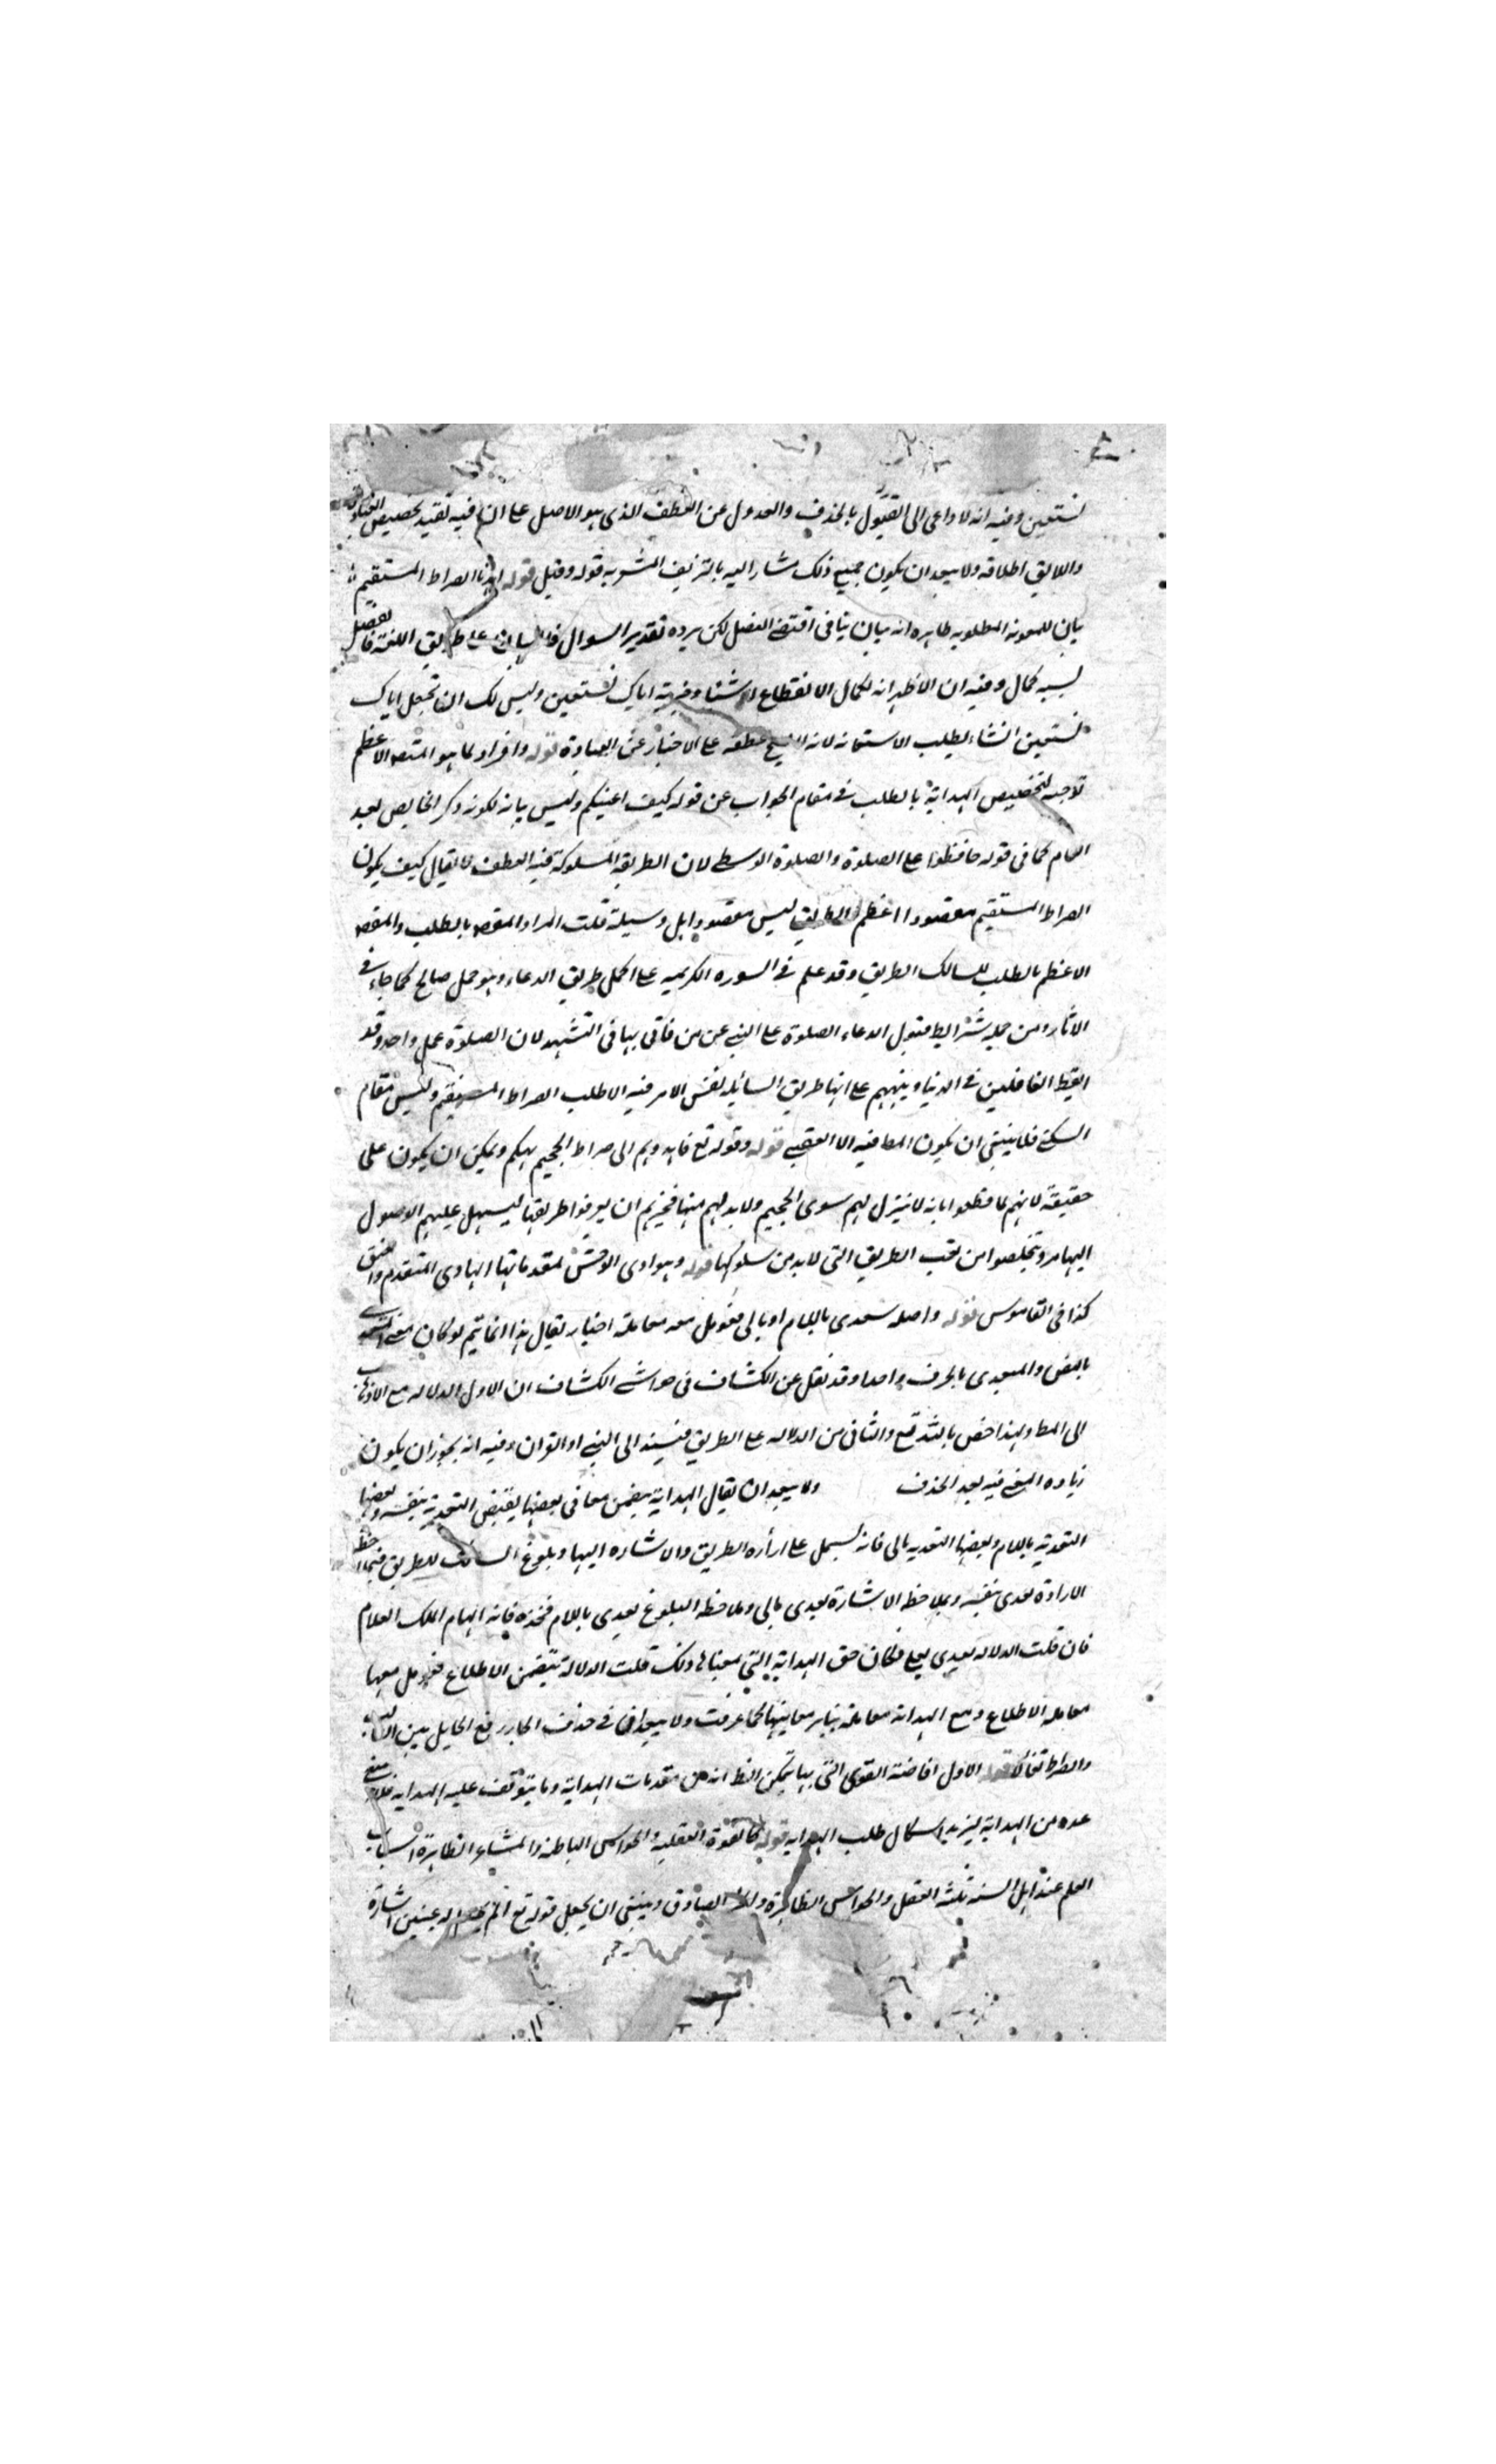 نستعين وفيه انه لا داعى الى القول بالحذف والعدول عن العطف الذى هو الاصل على ان فيه تقييد تخصيص العبادة
واللايق اطلاقه ولا يبعد ان يكون جميع ذلك مشارا اليه بالتزييف المشعر به قوله وقيل قوله اهدنا الصراط المستقيم
بيان للمعونة المطلوبه ظاهره انه بيان ينافى اقتضى الفصل لكن يرده تقدير السوال على طريق اللغة فالفصل
لشبه كمال وفيه ان الاظهر انه لكمال الانقطاع اياك نستعين وليس لك ان تجعل اياك
نستعين انشاء لطلب الاستعانه لانه لا يصح عطفه على الاخبار عن العبادة قوله وافراد لما هو المقصد الاعظم
توجيه لتخصيص الهداية بالطلب فى مقام الجواب عن قوله كيف اعينكم وليس بيانه لكونه ذكر الخاص بعد
العام كما فى قوله حافظوا على الصلوة والصلوة الوسطى لان الطريقة المسلوكة فيه العطف لا يقال كيف يكون
الصراط المستقيم مقصودا اعظم والطريق ليس مقصودا بل وسيلة قلت المراد المقصد بالطلب والمقصد
الاعظم بالطلب للسالك الطريق وقد علم فى السوره الكريمه على اكمل طريق الدعاء وهو عمل صالح كما جاء فى
الاثار ومن جملة شرايط قبول الدعاء الصلوة على النبى عن من فاتى بها فى التشهد لان الصلوة عمل واحد وقد
ايقظ الغافلين فى الدنيا وينبههم على انها طريق السائله لفس الامر فيه الا طلب الصراط المستقيم وليس مقام
السكنى فلا ينبغى ان يكون المط فيه الا العقبى قوله وقوله تع فاهدوهم الى صراط الجحيم تهكم ويمكن ان يكون على
حقيقة لانهم لما قطعوا بانه لا منزل لهم سوى الجحيم ولا بد لهم منها فخيرهم ان يعرفوا طريقها ليسهل عليهم الوصول
اليها ويتخلصوا من تعب الطريق التى لا بد من سلوكها قوله وهوادى الوحش لمقدماتها الهادى المتقدم والعنق
كذا فى القاموس قوله واصله تعدى باللام او بالى فعومل معه معاملة اختار يقال هذا انما يتم لو كان معنى المتعدى
بالنفس والمتعدى بالحرف واحدا وقد نقل عن الكشاف فى حواشى الكشاف ان الاول الدلاله مع الاذهاب
الى المط ولهذا خص بالله تع والثانى من الدلاله على الطريق فيسند الى النبى او القران وفيه انه يجوز ان يكون
زياده المعنى فيه بعد الحذف ولا يبعد ان يقال الهداية يتضمن معانى بعضها يقتضى التعدية بنفسه وبعضها
التعدية باللام وبعضها التعديه بالى فانه يشمل على ارأره الطريق والاشاره اليها وبلوغ السالك للطريق فبملاحظه
الاراءة تعدى بنفسه وبملاحظه الاشارة تعدى بالى وملاحظه البلوغ تعدى باللام فخذه فانه الهام الملك العلام
فان قلت الدلاله تعدى بعلى فكان حق الهداية التى بمعناها ذلك قلت الدلالة تتضمن الاطلاع فعومل معها
معاملة الاطلاع ومع الهداية معاملة يناسب معانيها كما عرفت ولا يبعد ان فى حذف الجار رفع الحايل بين السالك
والصراط تفألا قوله الاول افاضة القوى التى بها يتمكن الظ انه من مقدمات الهداية وما يتوقف عليه الهدايه فلا معنى
عده من الهداية ليزيد اشكال طلب الهدايه قوله كالقوة العقلية والحواس الباطنه والمشاعر الظاهرة اسباب
العلم عند اهل السنه ثلثة العقل والحواس الظاهرة والخبر الصادق وينبغى ان يجعل قوله تع الم نجعل له عينين اشارة